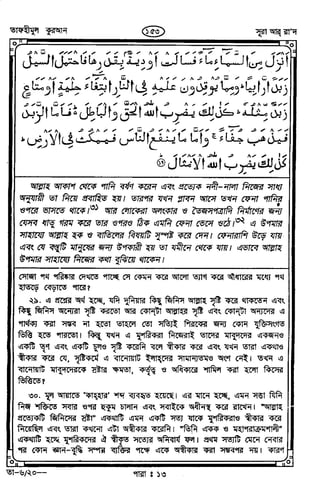 তাফহীমুল কুরআন
১৫৩
সূরা আর্ রা'দ
أَنْزَلَ مِنَ السَّمَاءِ مَاءً فَسَالَتْ أَوْدِيَةٌ بِقَدَرِهَا فَاحْتَمَلَ السَّيْلُ
زَبَدًا رَابِيًا وَمِمَّا يُوقِدُونَ عَلَيْهِ فِي النَّارِ ابْتِغَاءَ حِلْيَةٍ أَوْ مَتَاعٍ
زَبَدٌ مِثْلُهُ كَذَلِكَ يَضْرِبُ اللَّهُ الْحَقَّ وَالْبَاطِلَ فَأَمَّا الزَّبَدُ
فَيَذْهَبُ جُفَاءً وَأَمَّا مَا يَنْفَعُ النَّاسَ فَيَمْكُثُ فِي الْأَرْضِ
كَذَلِكَ يَضْرِبُ اللَّهُ الْأَمْثَالَ ⑰
আল্লাহ আকাশ থেকে পানি বর্ষণ করেন এবং প্রত্যেক নদী-নালা নিজের সাধ্য
অনুযায়ী তা নিয়ে প্রবাহিত হয়। তারপর যখন প্লাবন আসে তখন ফেনা পানির
ওপরে ভাসতে থাকে।৩১ আর লোকেরা অলংকার ও তৈজসপত্রাদি নির্মাণের জন্য
যেসব ধাতু গরম করে তার ওপরও ঠিক এমনি ফেনা ভেসে ওঠে।৩২ এ উপমার
সাহায্যে আল্লাহ হক ও বাতিলের বিষয়টি সুস্পষ্ট করে দেন। ফেনারাশি উড়ে যায়
এবং যে বস্তুটি মানুষের জন্য উপকারী হয় তা যমীনে থেকে যায়। এভাবে আল্লাহ
উপমার সাহায্যে নিজের কথা বুঝিয়ে থাকেন।
সোজা পথ পরিষ্কার দেখতে পাচ্ছে সে কেমন করে আলো ত্যাগ করে আঁধারের মধ্যে পথ
হাতড়ে বেড়াতে পারে?
২৯. এ প্রশ্নের অর্থ হচ্ছে, যদি দুনিয়ার কিছু জিনিস আল্লাহ সৃষ্টি করে থাকতেন এবং
কিছু জিনিস অন্যেরা সৃষ্টি করতো আর কোন্‌টা আল্লাহর সৃষ্টি এবং কোন্‌টা অন্যদের এ
পার্থক্য করা সম্ভব না হতো তাহলে তো সত্যিই শিরকের জন্য কোন যুক্তিসংগত
ভিত্তি হতে পারতো। কিন্তু যখন এ মুশরিকরা নিজেরাই তাদের মাবুদদের একজনও
একটি তৃণ এবং একটি চুলও সৃষ্টি করেনি বলে স্বীকার করে এবং যখন তারা একথাও
স্বীকার করে যে, সৃষ্টিকর্মে এ বানোয়াট ইলাহদের সামান্যতমও অংশ নেই। তখন এ
বানোয়াট মাবুদদেরকে স্রষ্টার ক্ষমতা, কর্তৃত্ব ও অধিকারে শামিল করা হলো কিসের
ভিত্তিতে?
৩০. মূল আয়াতে 'কাহ্‌হার' শব্দ ব্যবহৃত হয়েছে। এর মানে হচ্ছে, এমন সত্তা যিনি
নিজ শক্তিতে সবার ওপর হুকুম চালান এবং সবাইকে অধীনস্থ করে রাখেন। "আল্লাহ
প্রত্যেকটি জিনিসের স্রষ্টা" একথাটি এমন একটি সত্য যাকে মুশরিকরাও স্বীকার করে
নিয়েছিল এবং তারা কখনো এটা অস্বীকার করেনি। "তিনি একক ও মহাপরাক্রমশালী"
একথাটি হচ্ছে মুশরিকদের ঐ স্বীকৃত সত্যের অনিবার্য ফল। প্রথম সত্যটি মেনে নেবার
পর কোন জ্ঞান-বুদ্ধি সম্পন্ন ব্যক্তির পক্ষে একে অস্বীকার করা সম্ভবপর নয়। কারণ
তা-৬/২০--
পারা : ১৩